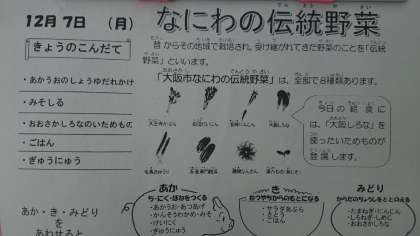 12月 7日　(月)
なにわの伝統野菜
きょうのこんだて
・あかうおのしょうゆだれかけ
・みそしる
・おおさかしろなのいためもの
・ごはん
・ぎゅうにゅう
昔からその地域で栽培され、受け継がれてきた野菜のことを「伝統
野菜」といいます。
「大阪市なにわの伝統野菜」は、全部で8種類あります。
大阪しろな
今日の給食に
は、「大阪しろな」を
使ったいためものが
登場します。
あか・き・みどり
を
あわせると
あか
ち・にく・ほねをつくる
・あかうお・あつあげ
・かんそうわかめ・みそ
・けいにく
・ぎゅうにゅう
き
ねつやちからのもとになる
・サラダあぶら
・さとう
・ごはん
みどり
からだのちょうしをととのえる
・たまねぎ・にんじん
・しろねぎ・しめじ
・おおさかしろな